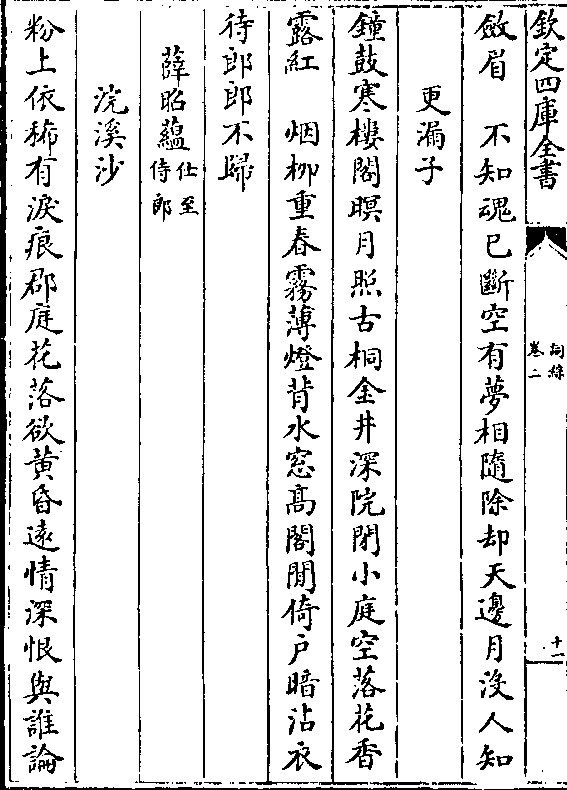 欽定四庫全書
詞綜
卷二
十一
斂眉　不知魂已斷空有夢相隨除却天邊月沒人知
更漏子
鐘鼓寒樓閣暝月照古桐金井深院閉小庭空落花香
露紅　烟栁重春霧薄燈背水窓髙閣閒倚户暗沾衣
待郎郎不歸
薛昭藴仕至侍郎
浣溪沙
粉上依稀有淚痕郡庭花落欲黄昏遠情深恨與誰論